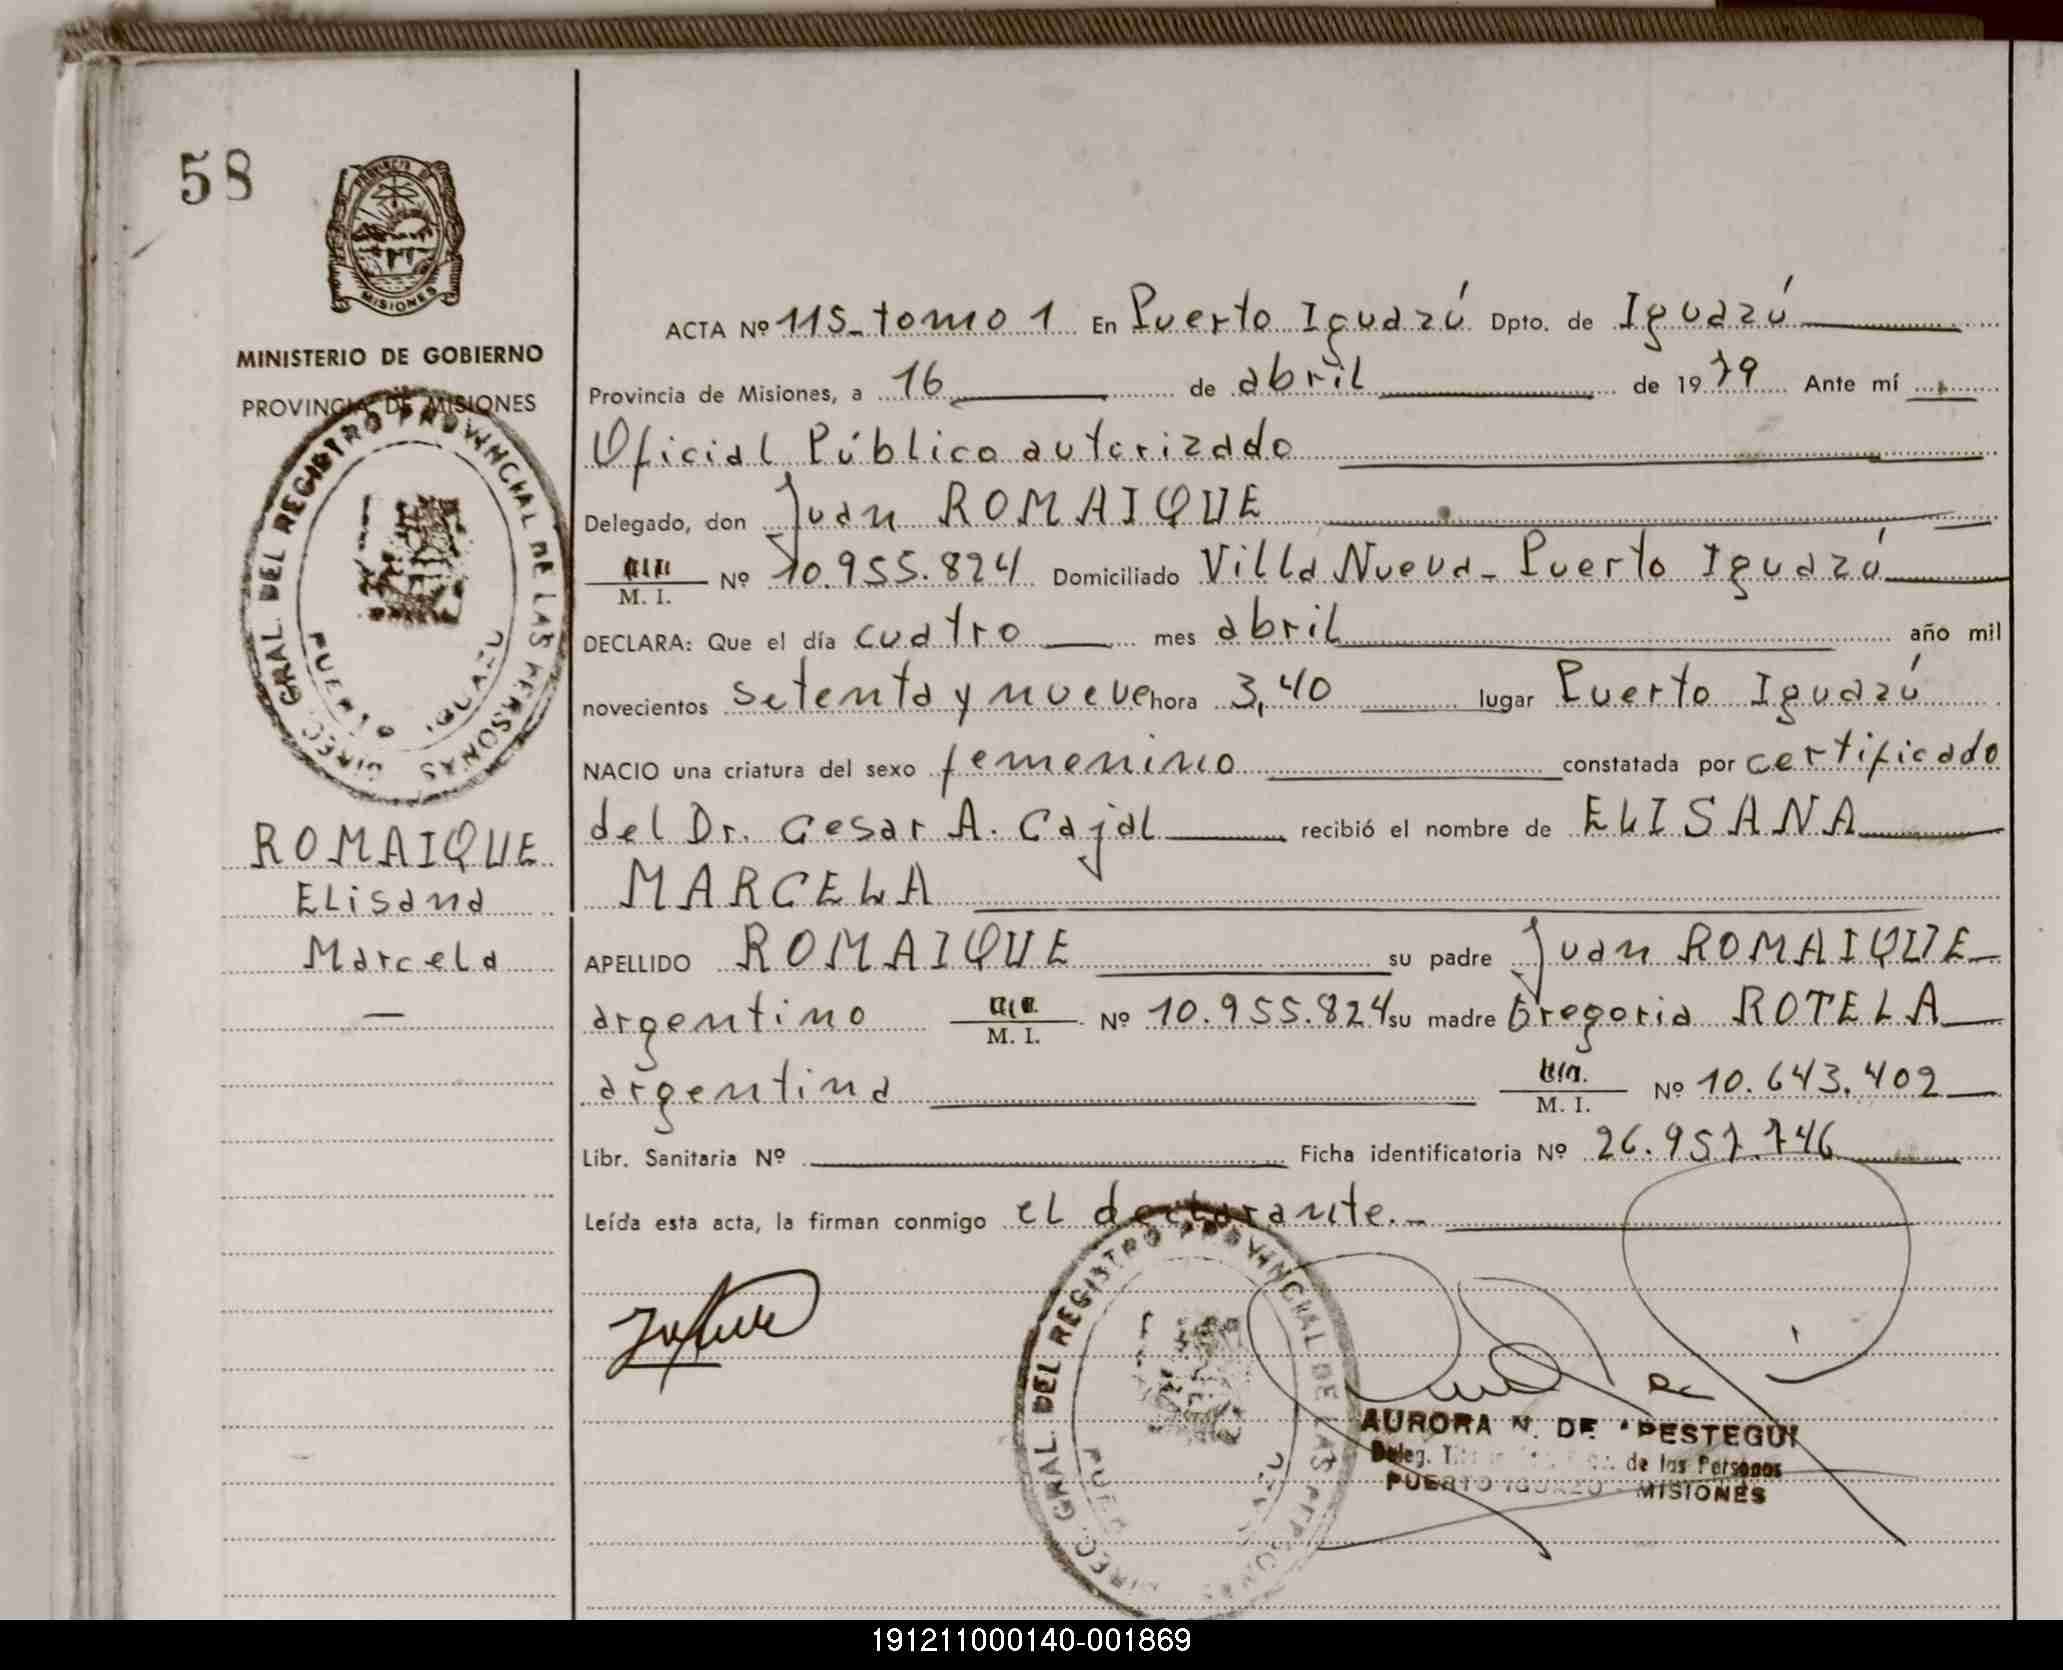 58
PROVINCIA DE
MISIONES
MINISTERIO DE GOBIERNO
PROVINCIA DE MISIONES
DIREC. GRAL. DEL REGISTRO PROVINCIAL DE LAS PERSONAS
PUERTO IGUAZU
ROMAIQUE
Elisana
Marcela
—
ACTA Nº 115_ tomo 1 En Puerto Iguazú Dpto. de Iguazú
Provincia de Misiones, a 16 de abril de 1979 Ante mí
Oficial Público autorizado
Delegado, don Juan ROMAIQUE
M. I. Nº 10.955.824 Domiciliado Villa Nueva - Puerto Iguazú
DECLARA: Que el día cuatro mes abril año mil
novecientos setenta y nueve hora 3,40 lugar Puerto Iguazú
NACIO una criatura del sexo femenino constatada por certificado
del Dr. Cesar A. Cajal recibió el nombre de ELISANA
MARCELA
APELLIDO ROMAIQUE su padre Juan ROMAIQUE
argentino M. I. Nº 10.955.824 su madre Gregoria ROTELA
argentina M. I. Nº 10.643.402
Libr. Sanitaria Nº Ficha identificatoria Nº 26.957.746
Leída esta acta, la firman conmigo el declarante._
DIREC. GRAL. DEL REGISTRO PROVINCIAL DE LAS PERSONAS
AURORA N. DE APESTEGUI
Deleg. de las Personas
PUERTO IGUAZU - MISIONES
191211000140-001869